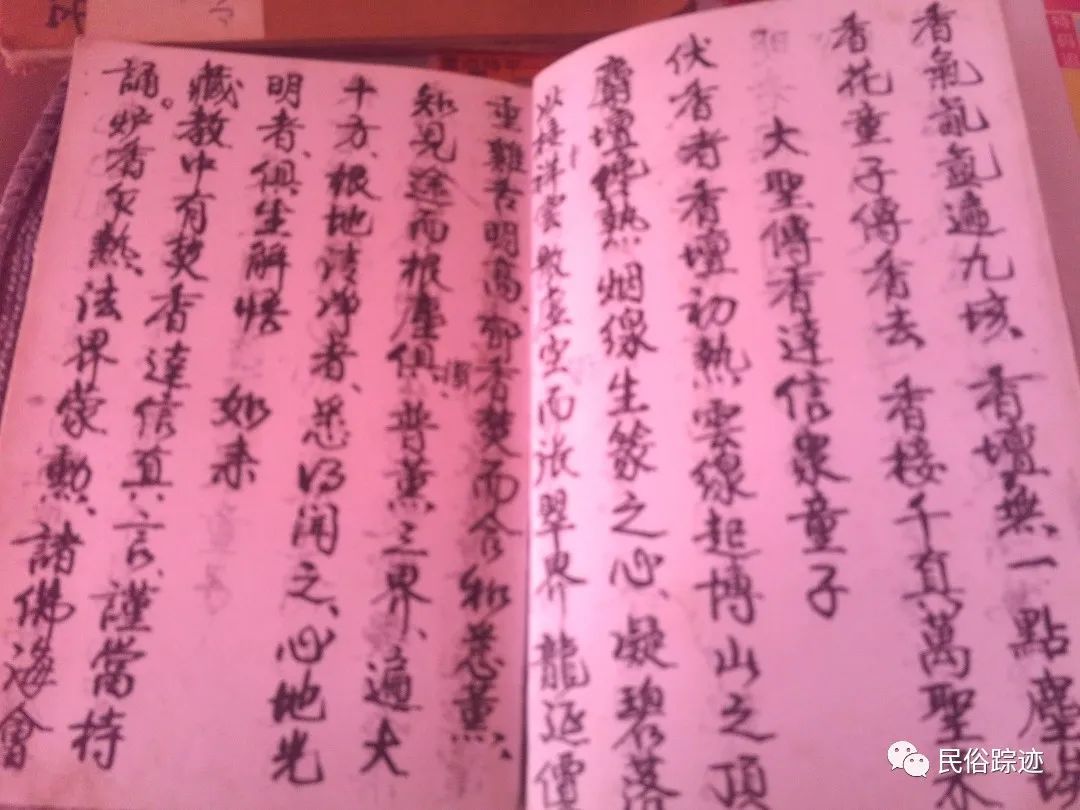 香氣氤氳遍九垓、香壇無一點塵埃
香花童子傳香去 香接千真萬聖來
大聖傳香達信衆童子
伏香者香壇初熱雲線起博山之頂
麝壇 熱烟線生篆之心、凝碧落
以接祥雲 虛空而張翠界龍涎價
重雞舌明高、 香焚而合 普薰、
知見途而根塵俱、普薰三界、遍大
千方、根地清淨者、悉以聞之、心地光
明者、俱生解悟 如来
藏教中有焚香達信真言、謹當持
誦。炉香乍熱、法界蒙熏、諸佛海會
民俗踪迹